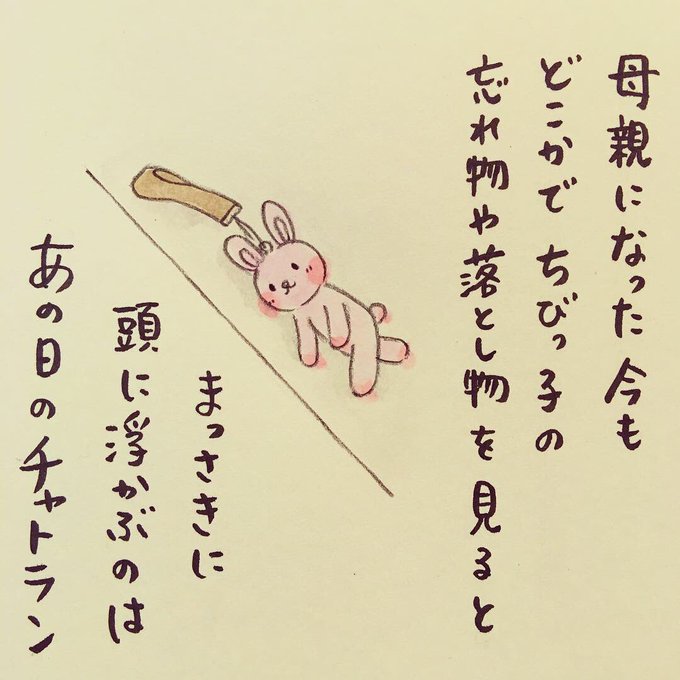 母親になった今も
どこかで ちびっ子の
忘れ物や落とし物を見ると
まっさきに
頭に浮かぶのは
あの日のチャトラン